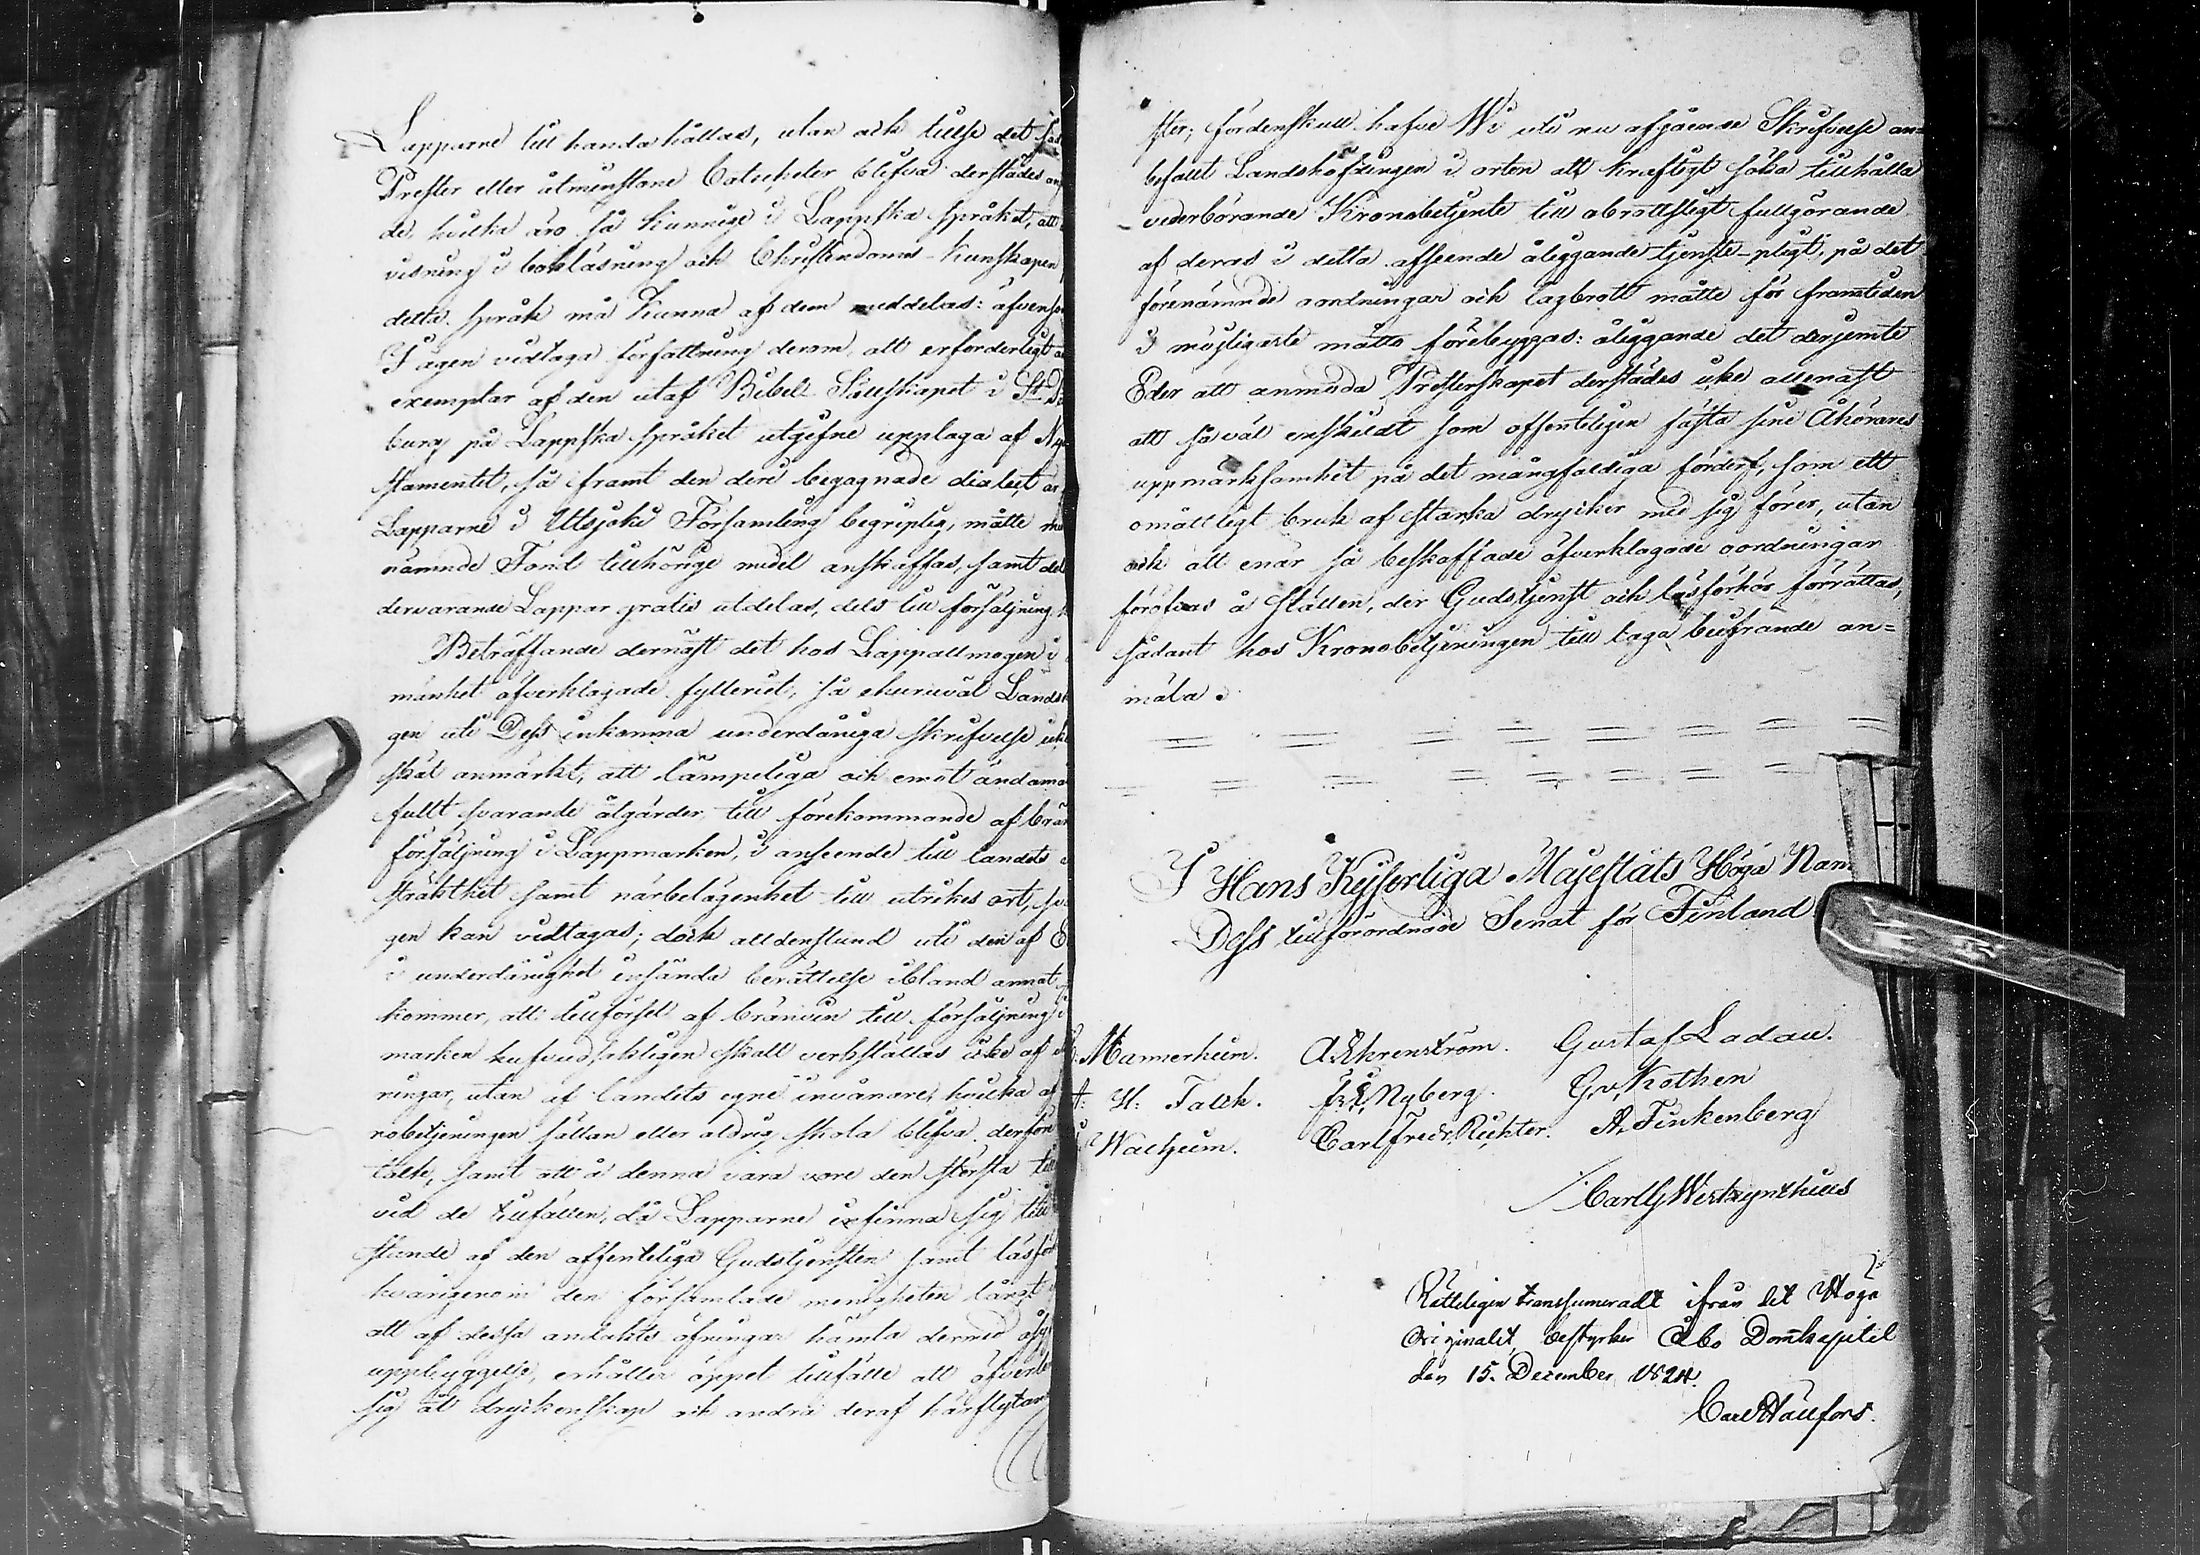 Lapparne till handa hållas, utan och tillse det
Prester eller åtminstone Catecheter blifva derstädes
de, hvilka äro så kunnige i Lappska språket, att
visning i bokläsning och Christendoms-kunskapen
detta språk må kunna af dem meddelas: äfvensom
I ägen vidtaga författning derom, att erforderligt
exemplar af den utaf Bibel-Sällskapet i St.
burg på Lappska språket utgifne upplaga af
stamentet, så framt den deri begagnade dialect är
Lapparne i Utsjoki Församling begriplig, måtte
nämnde Fond tillhörige medel anskaffas, samt
dervarande Lappar gratis utdelas, dels till försäljning
Beträffande dernäst det hos Lappallmogen i
månhet öfverklagade fylleriet, så ehuruväl
gen uti Dess inkomna underdåniga skrifvelse
skäl anmärkt, att lämpeliga och emot
fullt svarande åtgärder till förekommande af
försäljning i Lappmarken, i anseende till landets
sträckthet samt närbelägenhet till utrikes ort,
gen kan vidtagas; dock alldenstund uti den af
i underdånighet insända berättelse ibland annat
kommer, att tillförsel af bränvin till försäljning i
marken hufvudsakligen skall verkställas icke af
ningar, utan af landets egne invånare, hvilka af
nobetjeningen sällan eller aldrig skola blifva
talte, samt att å denna vara vore den största
vid de tillfällen, då Lapparne infinna sig till
stunde af den offentliga Gudstjensten samt
hvarigenom den församlade menigheten långt
att af dessa andakts öfningar hämta dermed
uppbyggelse, erhåller öppet tillfälle att
sig åt dryckenskap och andra deraf härflytande
ster; fördenskull hafve Wi uti nu afgående Skrifvelse an-
befallt Landshöfdingen i orten att kraftigt söka tillhålla
vederbörande Kronobetjente till obrottsligt fullgörande
af deras i detta afseende åliggande tjenste-pligt, på det
förenämnde oordningar och lagbrott måtte för framtiden
i möjligaste måtto förebyggas: åliggande det derjemte
Eder att anmoda Presterskapet derstädes icke allenast
att så väl enskildt som offenteligen fästa sine Åhörares
uppmärksamhet på det mångfaldiga förderf, som ett
omåttligt bruk af starka drycker med sig förer, utan
och att enär så beskaffade öfverklagade oordningar
föröfvas å ställen, der Gudstjenst och läsförhör förrättas,
sådant hos Kronobetjeningen till laga beifrande an=
mäla.
I Hans Kejserliga Majestäts Höga Namn
Dess tillförordnade Senat för Finland
Mannerheim. A. Ehrenström. Gustaf Ladau.
A. H. Falck. Nyberg. G. v. Kothen
Walheim. Carl Fredr. Richter. A. Finkenberg
Carl G Wirtzynthius
Rätteligen transsumeradt ifrån det Höga
Originalet bestyrker Åbo Domkapitel
den 15. December 1824.
Carl Hällfors.